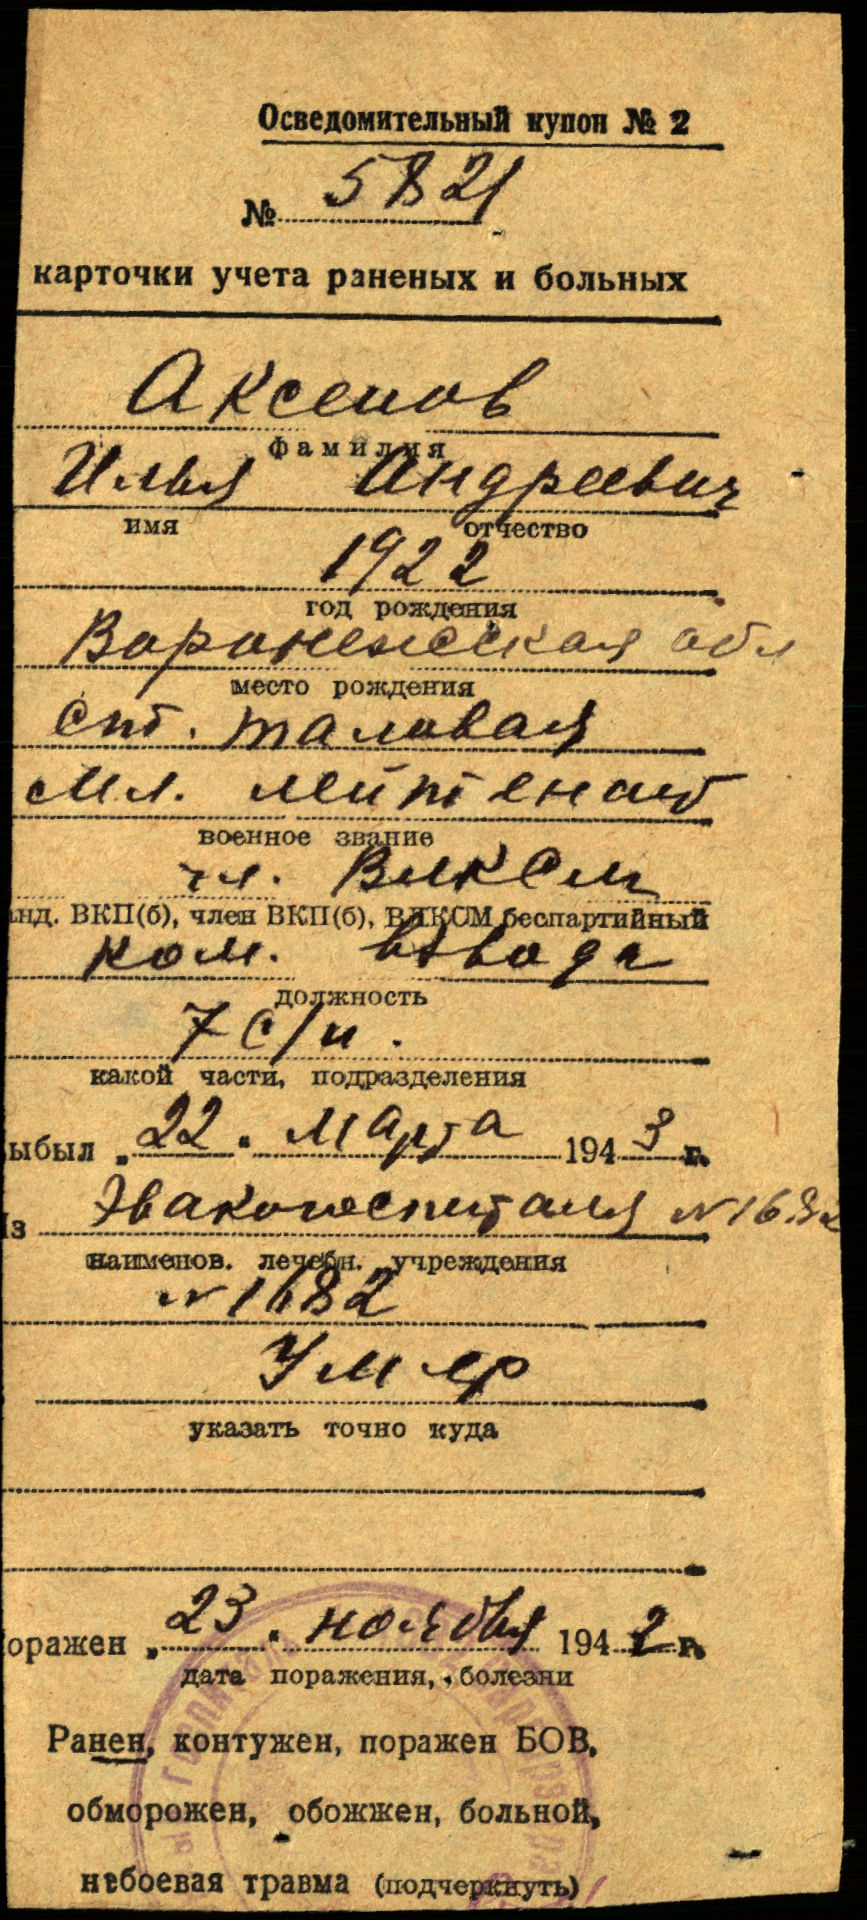 Осведомительный купон № 2
№ 5821
карточки учета раненых и больных
Аксенов
фамилия
Илья Андреевич
имя отчество
1922
год рождения
Воронежская обл
место рождения
спт. Таловая
мл. лейтенант
военное звание
чл. ВЛКСМ
анд. ВКП(б), член ВКП(б), ВЛКСМ беспартийный
ком. взвода
должность
7 с/п.
какой части, подразделения
ыбыл „22" марта 1943 г.
Из Эвакогоспиталя №1682
наименов. лечебн. учреждения
№1682
Умер
указать точно куда
оражен „23" ноября 1942 г.
дата поражения, болезни
Ранен, контужен, поражен БОВ,
обморожен, обожжен, больной,
небоевая травма (подчеркнуть)